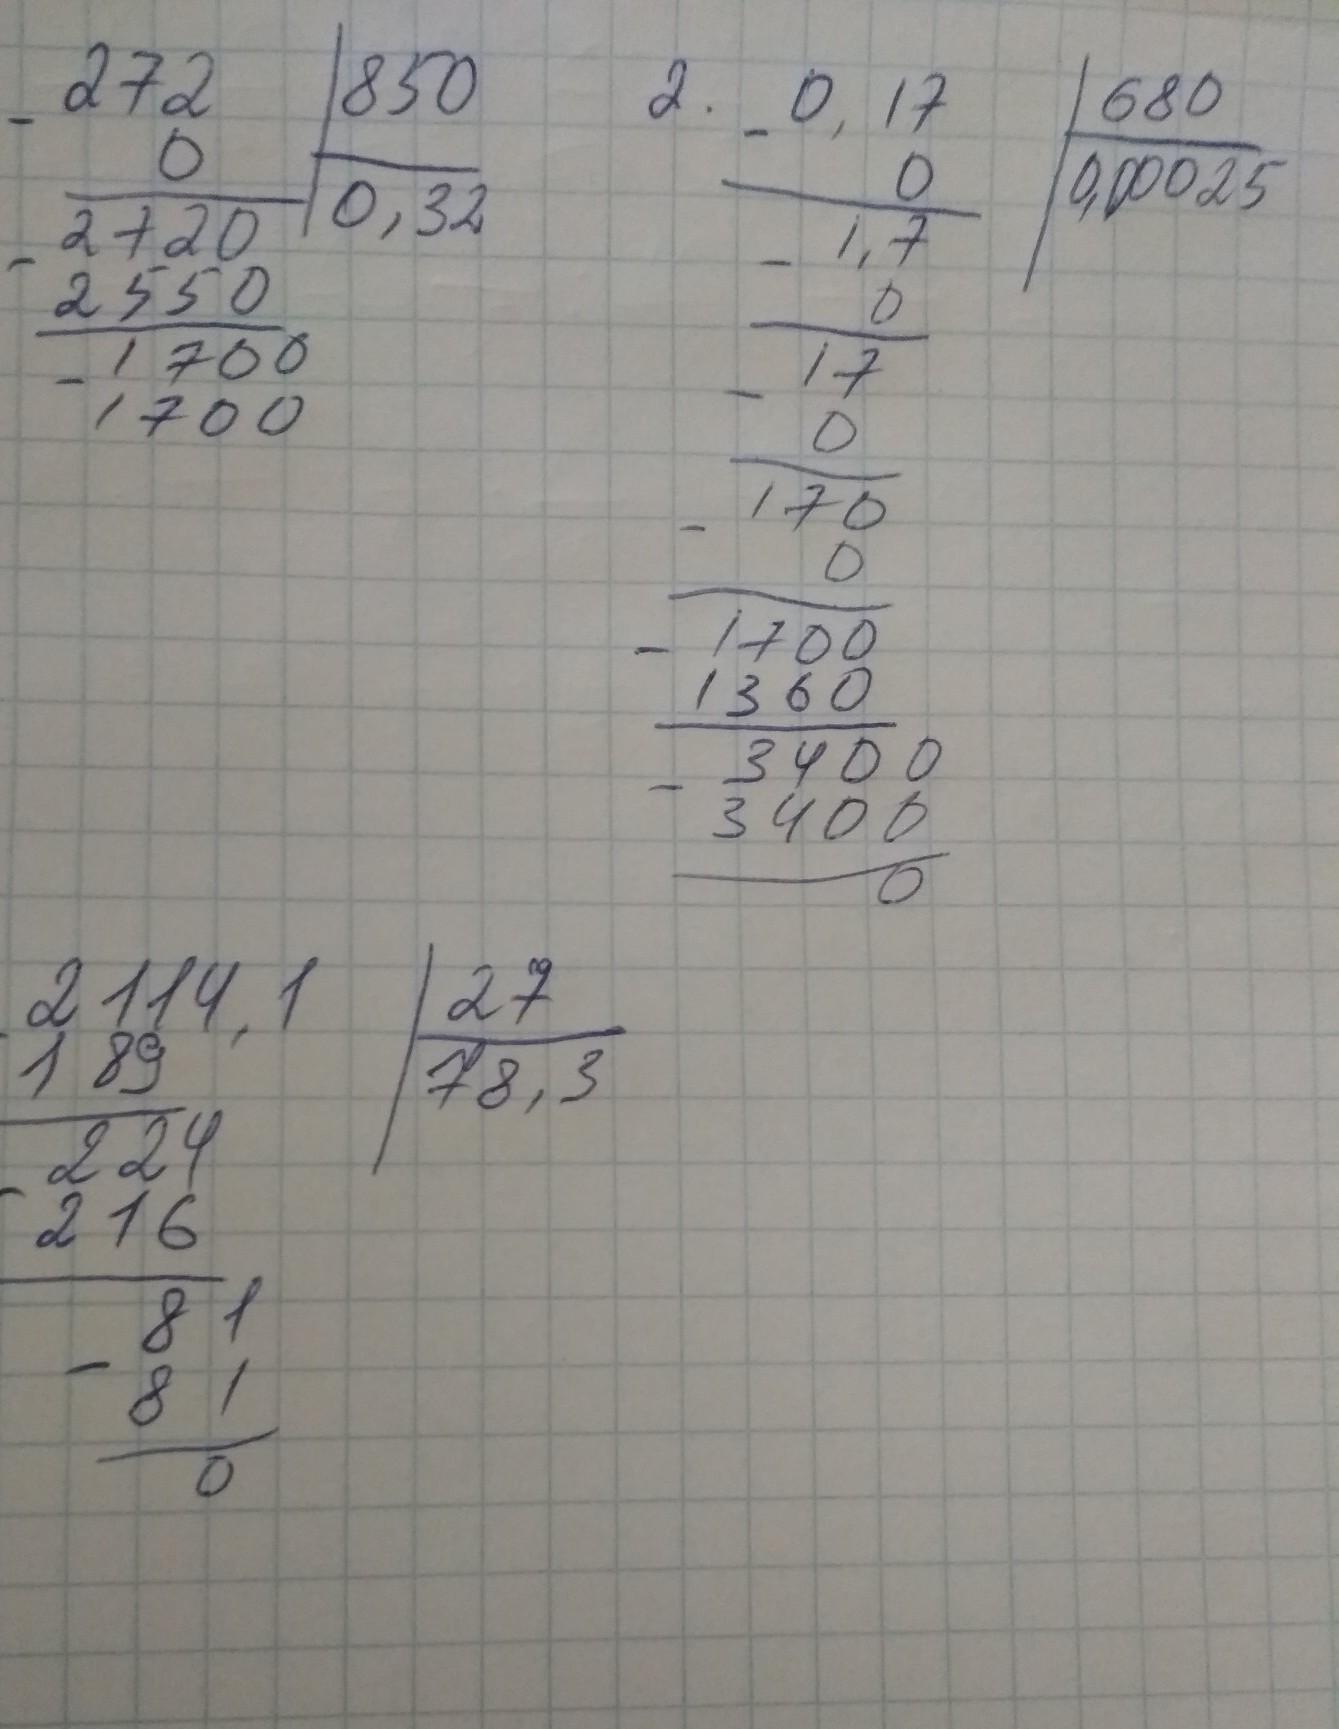 - 272 | 850
0
0,32
- 2720
2550
- 1700
1700
2. - 0,17 | 680
0
0,00025
- 1,7
0
- 17
0
- 170
0
- 1700
1360
- 3400
3400
0
- 2114,1 | 27
189
78,3
- 224
216
- 81
81
0